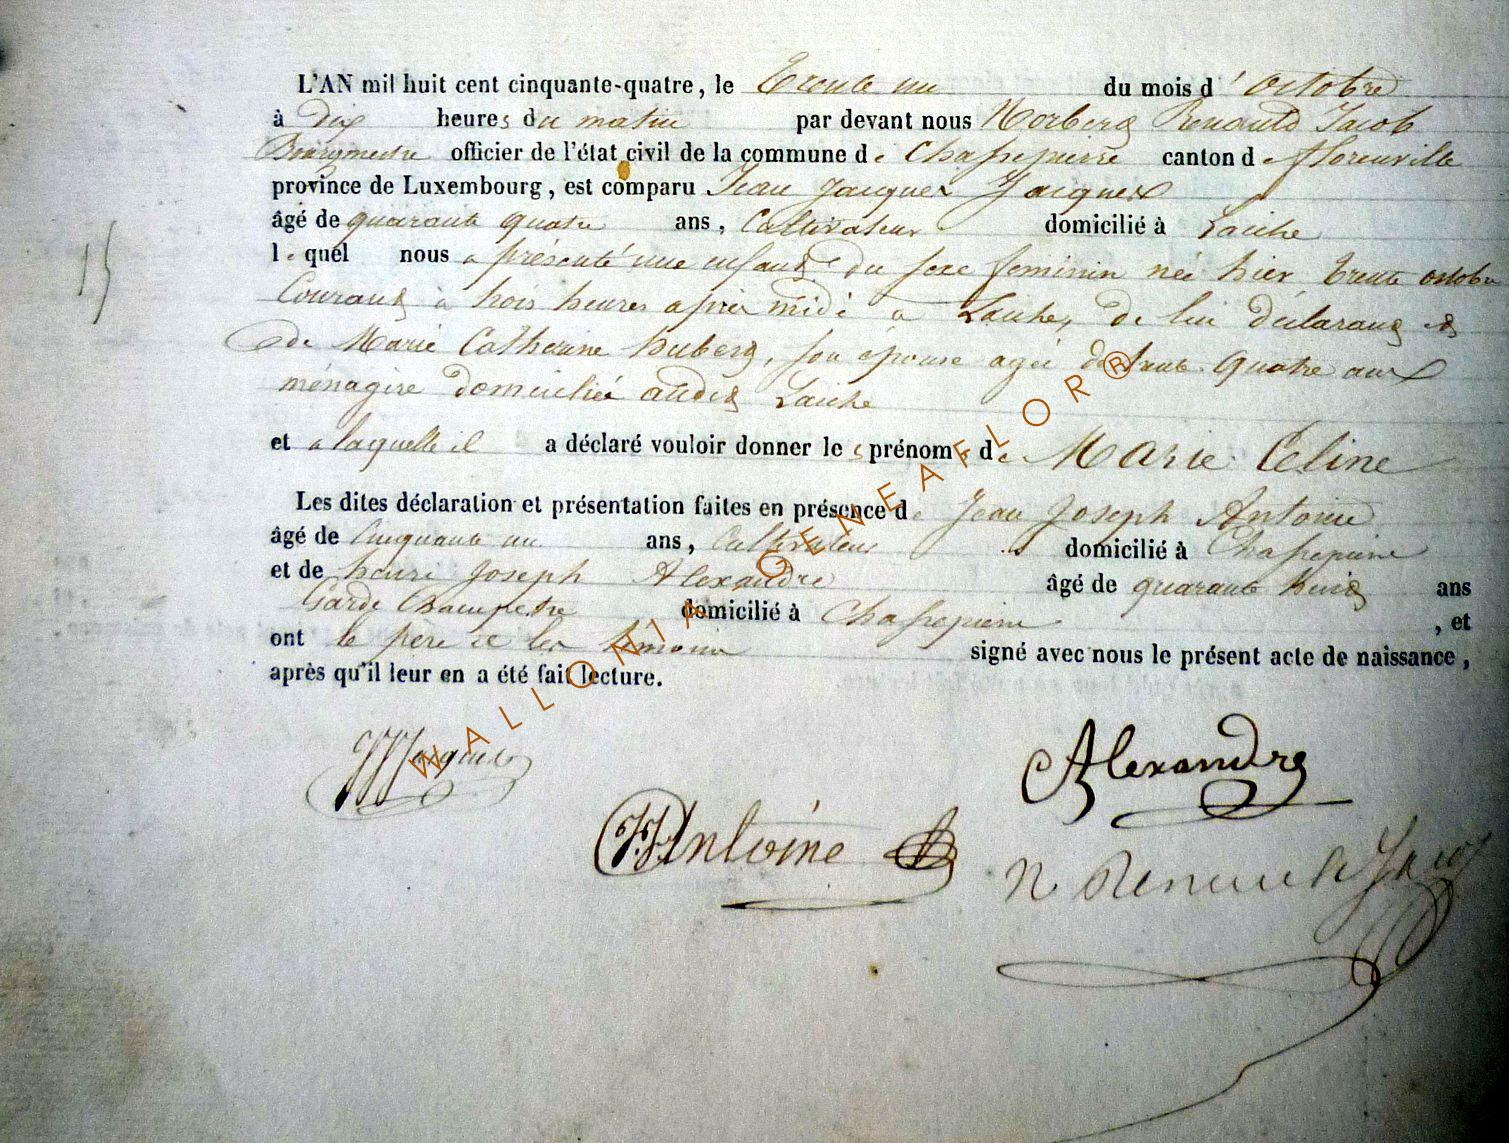 L'AN mil huit cent cinquante-quatre, le Trente un du mois d'Octobre
à dix heures du matin par devant nous Norberg Renauld Jacob
Bourgmestre officier de l'état civil de la commune de Chassepierre canton de florenville
province de Luxembourg, est comparu Jean Jacques Jacques
âgé de quarante quatre ans, Cultivateur domicilié à Laiche
lequel nous a présenté une enfant du sexe feminin née hier trente octobre
Courant à trois heures après midi à Laiche, de lui déclarant et
de Marie Catherine huberg, son épouse agée de trente quatre ans
ménagère domiciliée audit Laiche
et a laquelle il a déclaré vouloir donner les prénoms de Marie Celine
Les dites déclaration et présentation faites en présence de Jean Joseph Antoine
âgé de Cinquante un ans, Cultivateur domicilié à Chassepierre
et de henri Joseph Alexandre âgé de quarante huit ans
Garde Champetre domicilié à Chassepierre, et
ont le pere et les témoins signé avec nous le présent acte de naissance,
après qu'il leur en a été fait lecture.
15
JJJacques
Alexandre
JJAntoine
N Renauld Jacob
WALLONIA GENEAFLOR®